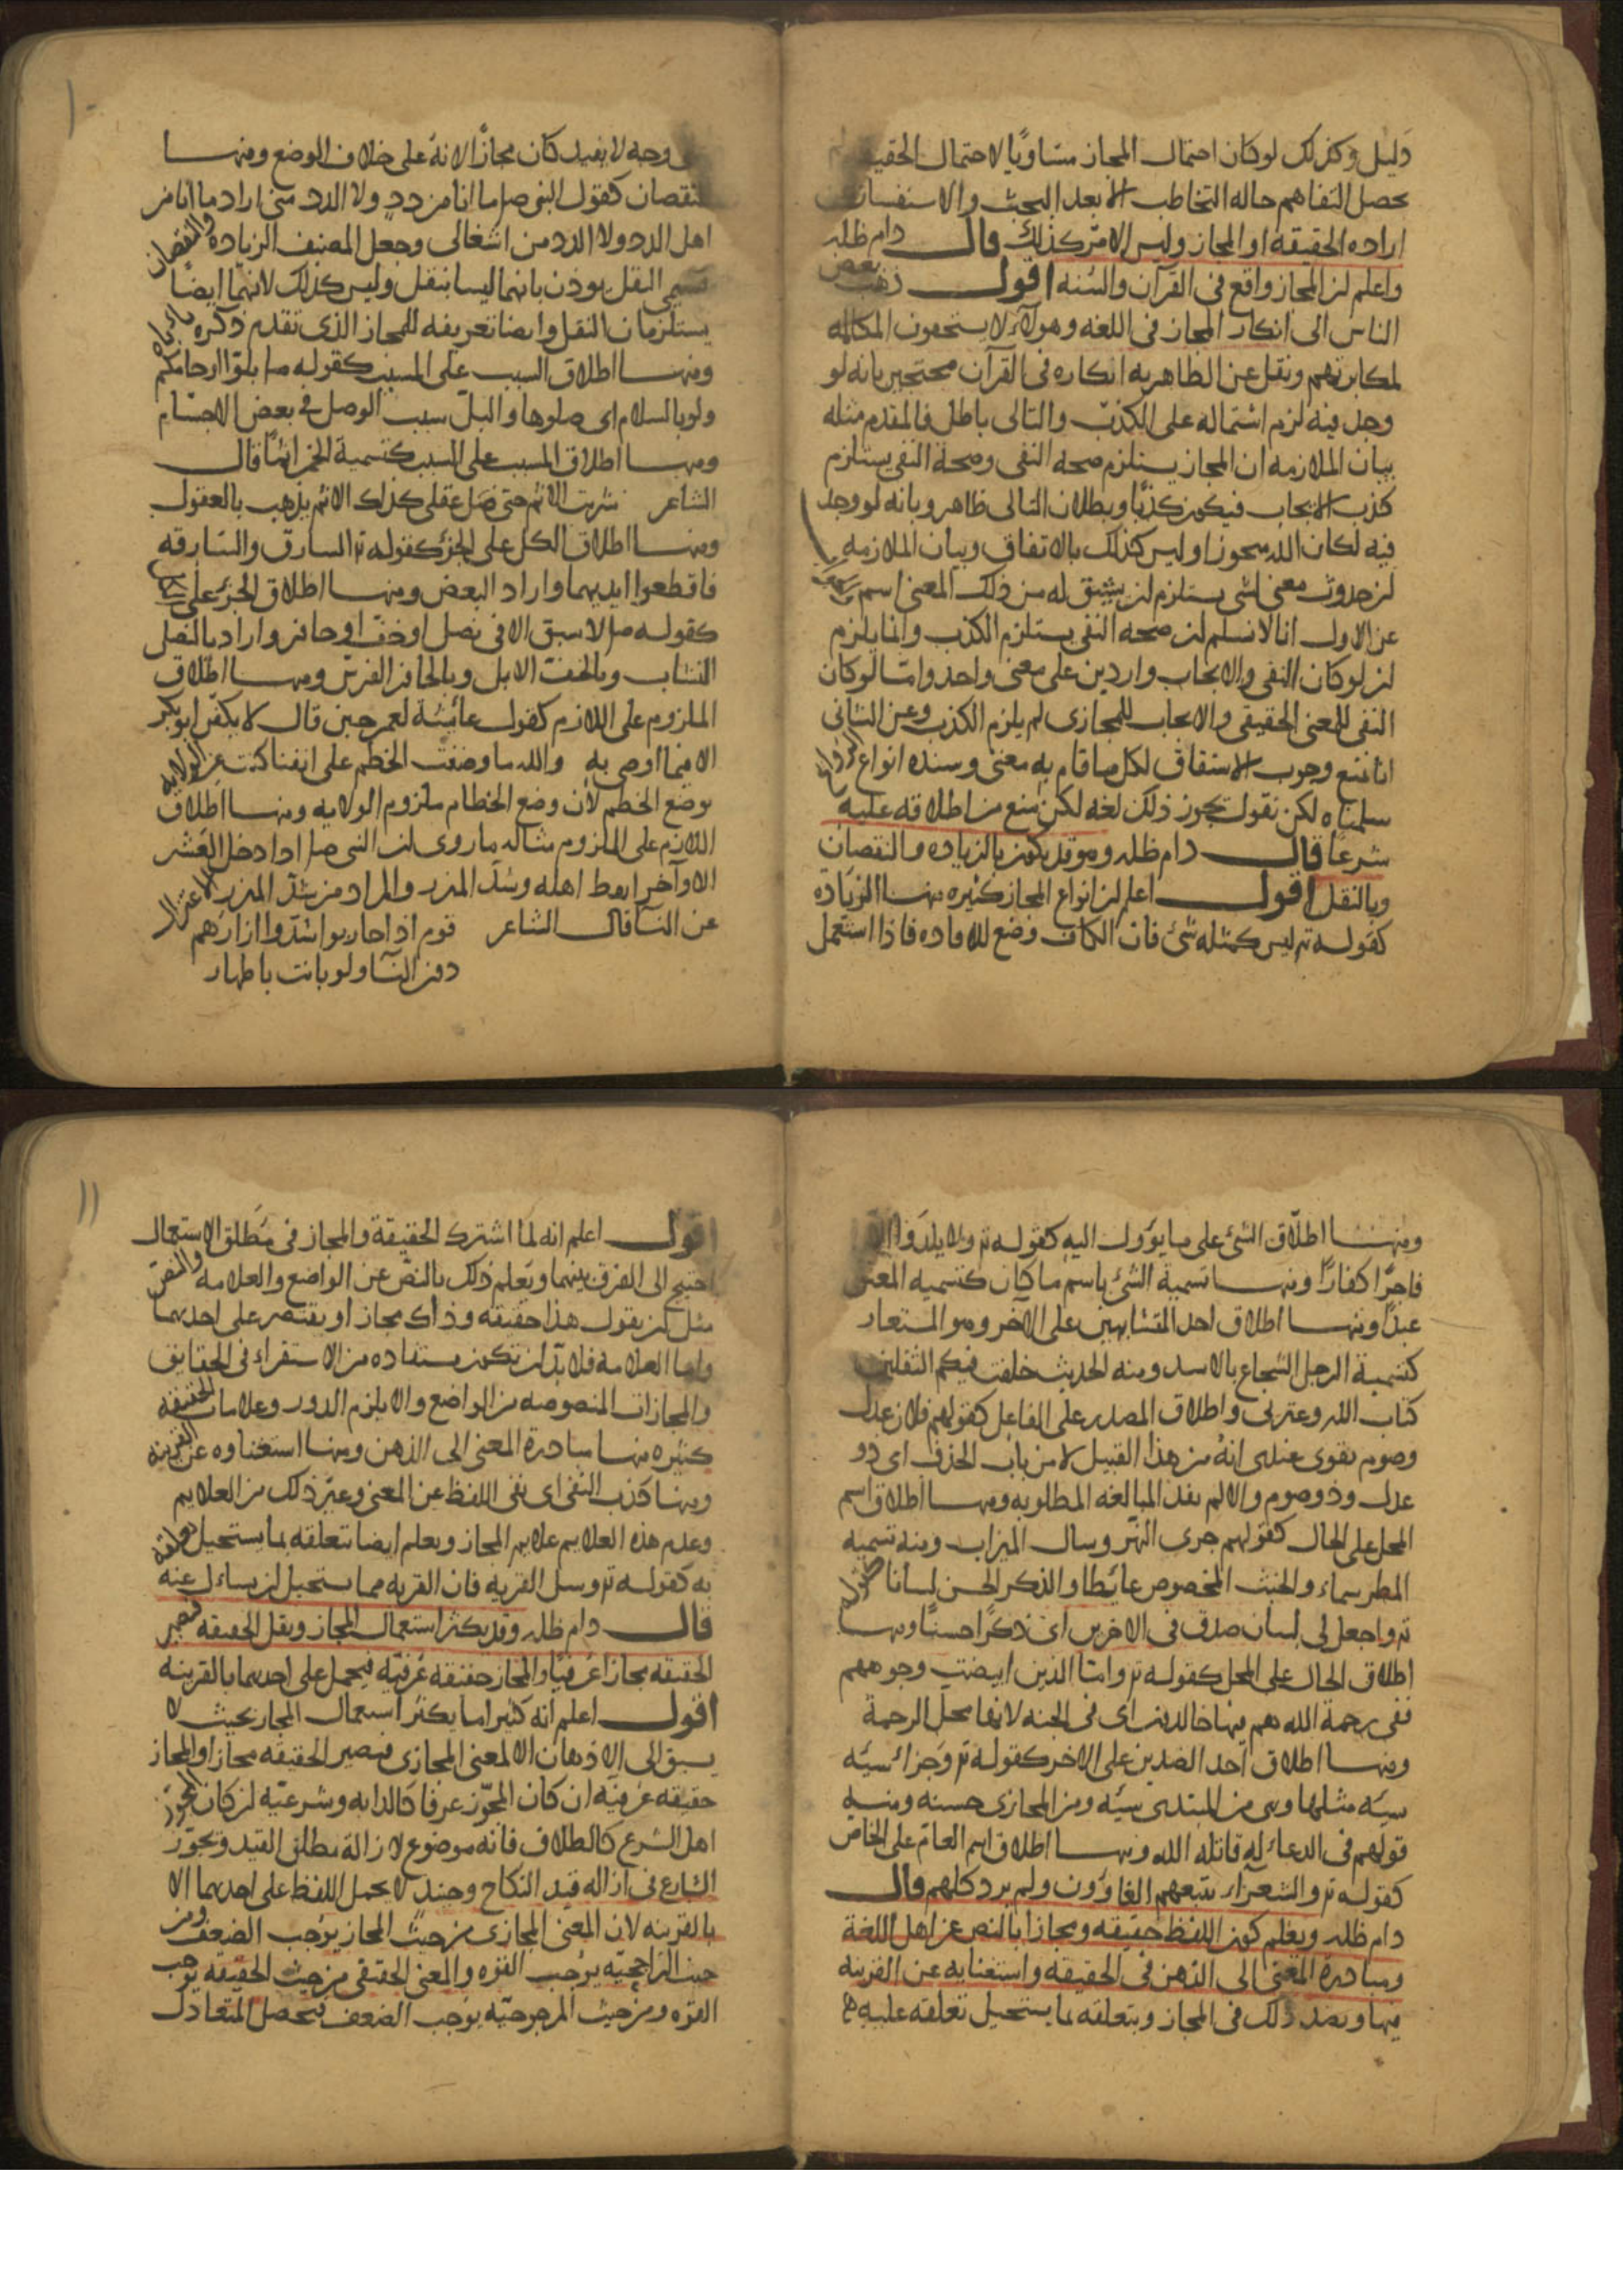 دليل وكذلك لو كان احتمال المجاز مساويًا لاحتمال الحقيقه لم
يحصل التفاهم حاله التخاطب الا بعد البحث والاستفسار عن
اراده الحقيقه او المجاز وليس الامر كذلك قال دام ظله
واعلم ان المجاز واقع في القرآن والسنه اقول ذهب بعض
الناس الى انكار المجاز في اللغه وهولاء لا يستحقون المكالمه
لمكابرتهم ونقل عن الظاهريه انكاره في القرآن محتجين بانه لو
وجد فيه لزم اشتماله على الكذب والتالى باطل فالمقدم مثله
بيان الملازمه ان المجاز يستلزم صحه النفي وصحة النفي يستلزم
كذب الايجاب فيكون كذبًا وبطلان التالى ظاهر وبانه لو وجد
فيه لكان الله متجوزا وليس كذلك بالاتفاق وبيان الملازمه
ان حدوث معنى لشي يستلزم ان يشتق له من ذلك المعنى اسم
عن الاول انا لا نسلم ان صحه النفي يستلزم الكذب وانما يلزم
ان لو كان النفي والايجاب واردين على معنى واحد واما لو كان
النفي للمعنى الحقيقي والايجاب للمجازى لم يلزم الكذب وعن الثاني
انا نمنع وجوب الاشتقاق لكل ما قام به معنى وسنده انواع الروايح
سلمناه لكن نقول يجوز ذلك لغه لكن منع من اطلاقه عليه
شرعًا قال دام ظله وهو قد يكون بالزياده والنقصان
وبالنقل اقول اعلم ان انواع المجاز كثيره منها الزياده
كقوله تع ليس كمثله شئ فان الكاف وضع للافاده فاذا استعمل
على وجه لا يفيد كان مجازًا لانه على خلاف الوضع ومنها
النقصان كقول النبي صلع ما انا من ددٍ ولا الدد مني اراد ما انا من
اهل الدد ولا الدد من اشغالى وجعل المصنف الزياده والنقصان
قسيمي النقل يوذن بانهما ليسا بنقل وليس كذلك لانهما ايضًا
يستلزمان النقل وايضا تعريفه للمجاز الذي تقدم ذكره
ومنها اطلاق السبب على المسبب كقوله صلع بلوّا ارحامكم
ولو بالسلام اى صلوها والبلّ سبب الوصل في بعض الاجسام
ومنها اطلاق المسبب على السبب كتسمية الخمر اثمًا قال
الشاعر شربت الاثم حتى ضل عقلي كذلك الاثم يذهب بالعقول
ومنها اطلاق الكل على الجزء كقوله تع السارق والسارقه
فاقطعوا ايديهما واراد البعض ومنها اطلاق الجزء على الكل
كقوله صلع لا سبق الا في نصل او خف او حافر واراد بالنصل
النشاب وبالخف الابل وبالحافر الفرس ومنها اطلاق
الملزوم على اللازم كقول عائشة لعمر حين قال لا يكفن ابو بكر
الا فيما اوصى به والله ما وضعت الخطم على انفنا كنت عن الولايه
بوضع الخطم لان وضع الخطام ملزوم الولايه ومنها اطلاق
اللازم على الملزوم مثاله ما روى ان النبي صلع اذا دخل العشر
الاواخر ايقظ اهله وشد المئزر والمراد من شد المئزر الاعتزال
عن النسا قال الشاعر قوم اذا حاربوا شدّوا ازارهم
دون النسا ولو باتت باطهار
ومنها اطلاق الشئ على ما يؤول اليه كقوله تع ولا يلدوا الا
فاجرًا كفارًا ومنها تسمية الشئ باسم ما كان كتسميه المعتق
عبدًا ومنها اطلاق احد المتشابهين على الآخر وهو المستعار
كتسمية الرجل الشجاع بالاسد ومنه الحديث خلفت فيكم الثقلين
كتاب الله وعترتى واطلاق المصدر على الفاعل كقولهم فلان عدل
وصوم يقوى عندى انه من هذا القبيل لا من باب الحذف اى ذو
عدل وذو صوم والا لم يفد المبالغه المطلوبه ومنها اطلاق اسم
المحل على الحال كقولهم جرى النهر وسال الميزاب ومنه تسميه
المطر سماء والخبث المخصوص غائطا والذكر الحسن لسانا كقوله
تع واجعل لى لسان صدق في الاخرين اى ذكرًا حسنًا ومنها
اطلاق الحال على المحل كقوله تع واما الذين ابيضت وجوههم
ففى رحمة الله هم فيها خالدون اى في الجنه لانها محل الرحمة
ومنها اطلاق احد الضدين على الاخر كقوله تع وجزاء سيئه
سيئه مثلها وهي من المبتدى سيئه ومن المجازى حسنه ومنه
قولهم في الدعاء له قاتله الله ومنها اطلاق اسم العام على الخاص
كقوله تع والشعراء يتبعهم الغاوون ولم يرد كلهم قال
دام ظله ويعلم كون اللفظ حقيقه ومجازا بالنص عن اهل اللغة
ومبادرة المعنى الى الذهن في الحقيقه واستغنايه عن القرينه
فيها وبضد ذلك في المجاز وبتعلقه بما يستحيل تعلقه عليه
اقول اعلم انه لما اشترك الحقيقة والمجاز في مطلق الاستعمال
احتيج الى الفرق بينهما ويعلم ذلك بالنص عن الواضع والعلامه والنص
مثل ان يقول هذا حقيقه وذاك مجاز او يقتصر على احديهما
واما العلامه فلا بد ان تكون مستفاده من الاستقراء في الحقايق
والمجازات المنصوصه من الواضع والا يلزم الدور وعلامات الحقيقه
كثيره منها مبادرة المعنى الى الذهن ومنها استغناوه عن القرينه
ومنها كذب النفي اى نفى اللفظ عن المعنى وغير ذلك من العلايم
وعدم هذه العلايم علايم المجاز ويعلم ايضا بتعلقه بما يستحيل تعلقه
به كقوله تع وسل القريه فان القريه مما يستحيل ان يساءل عنه
قال دام ظله وقد يكثر استعمال المجاز ويقل الحقيقه فتصير
الحقيقه مجازا عرفيًا والمجاز حقيقه عرفيّه فيحمل على احديهما بالقرينه
اقول اعلم انه كثيرا ما يكثر استعمال المجاز بحيث لا
يسبق الى الاذهان الا المعنى المجازى فيصير الحقيقه مجازا والمجاز
حقيقه عرفيه ان كان المجوّز عرفا كالدابه وشرعيّه ان كان المجوز
اهل الشرع كالطلاق فانه موضوع لازالة مطلق القيد وتجوّز
الشارع في ازاله قيد النكاح وحينئذٍ لا يحمل اللفظ على احديهما الا
بالقرينه لان المعنى المجازى من حيث المجاز يوجب الضعف ومن
حيث الراجحيّه يوجب القوه والمعنى الحقيقي من حيث الحقيقه يوجب
القوه ومن حيث المرجوحيّه يوجب الضعف فيحصل المتعادل